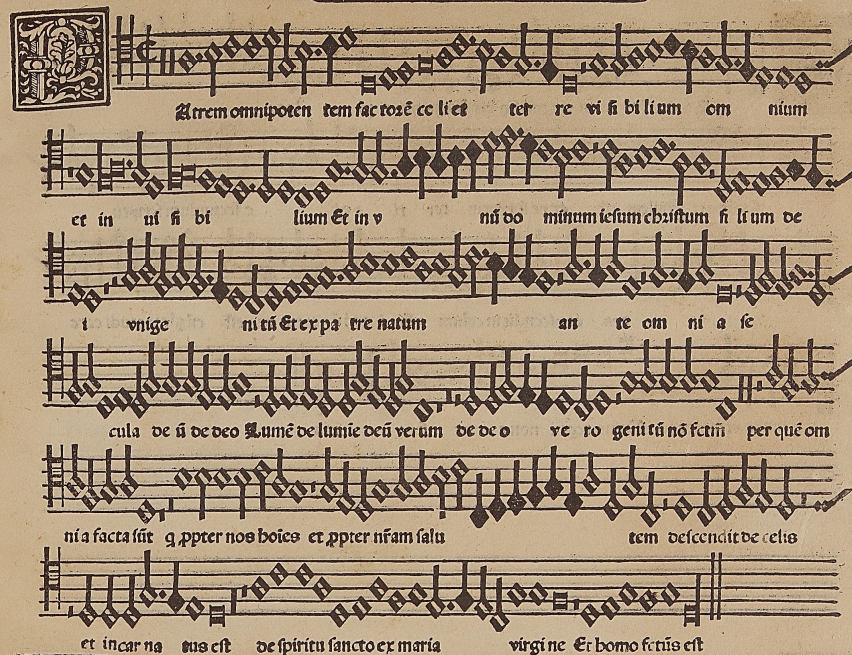 Atrem omnipoten tem factorē celi et ter re visibilium om nium
et in visi bi lium Et in v nū do minum iesum christum filium de
i vnige nitū Et ex pa tre natum an te om ni a se
cula de ū de deo Lumē de lumie deū verum de deo ve ro genitū nō fctm̄ per quē om
nia facta sūt q ꝓpter nos hoīes et ꝓpter nr̄am salu tem descendit de celis
et incarna tus est de spiritu sancto ex maria virgine Et homo fctus est